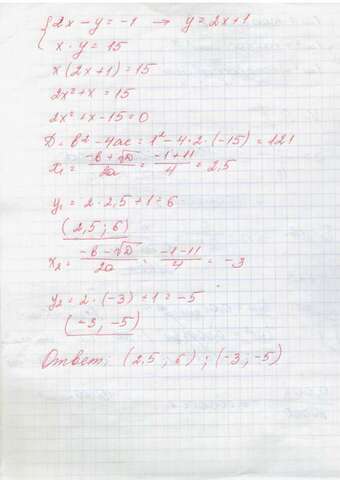 {2x - y = -1 → y = 2x+1
x · y = 15
x (2x+1) = 15
2x² + x = 15
2x² + x - 15 = 0
D = b² - 4ac = 1² - 4 · 2 · (-15) = 121
x₁ = (-b + √D)/2a = (-1+11)/4 = 2,5
y₁ = 2 · 2,5 + 1 = 6
(2,5 ; 6)
x₂ = (-b - √D)/2a = (-1-11)/4 = -3
y₂ = 2 · (-3) + 1 = -5
(-3; -5)
Ответ: (2,5 ; 6) ; (-3; -5)